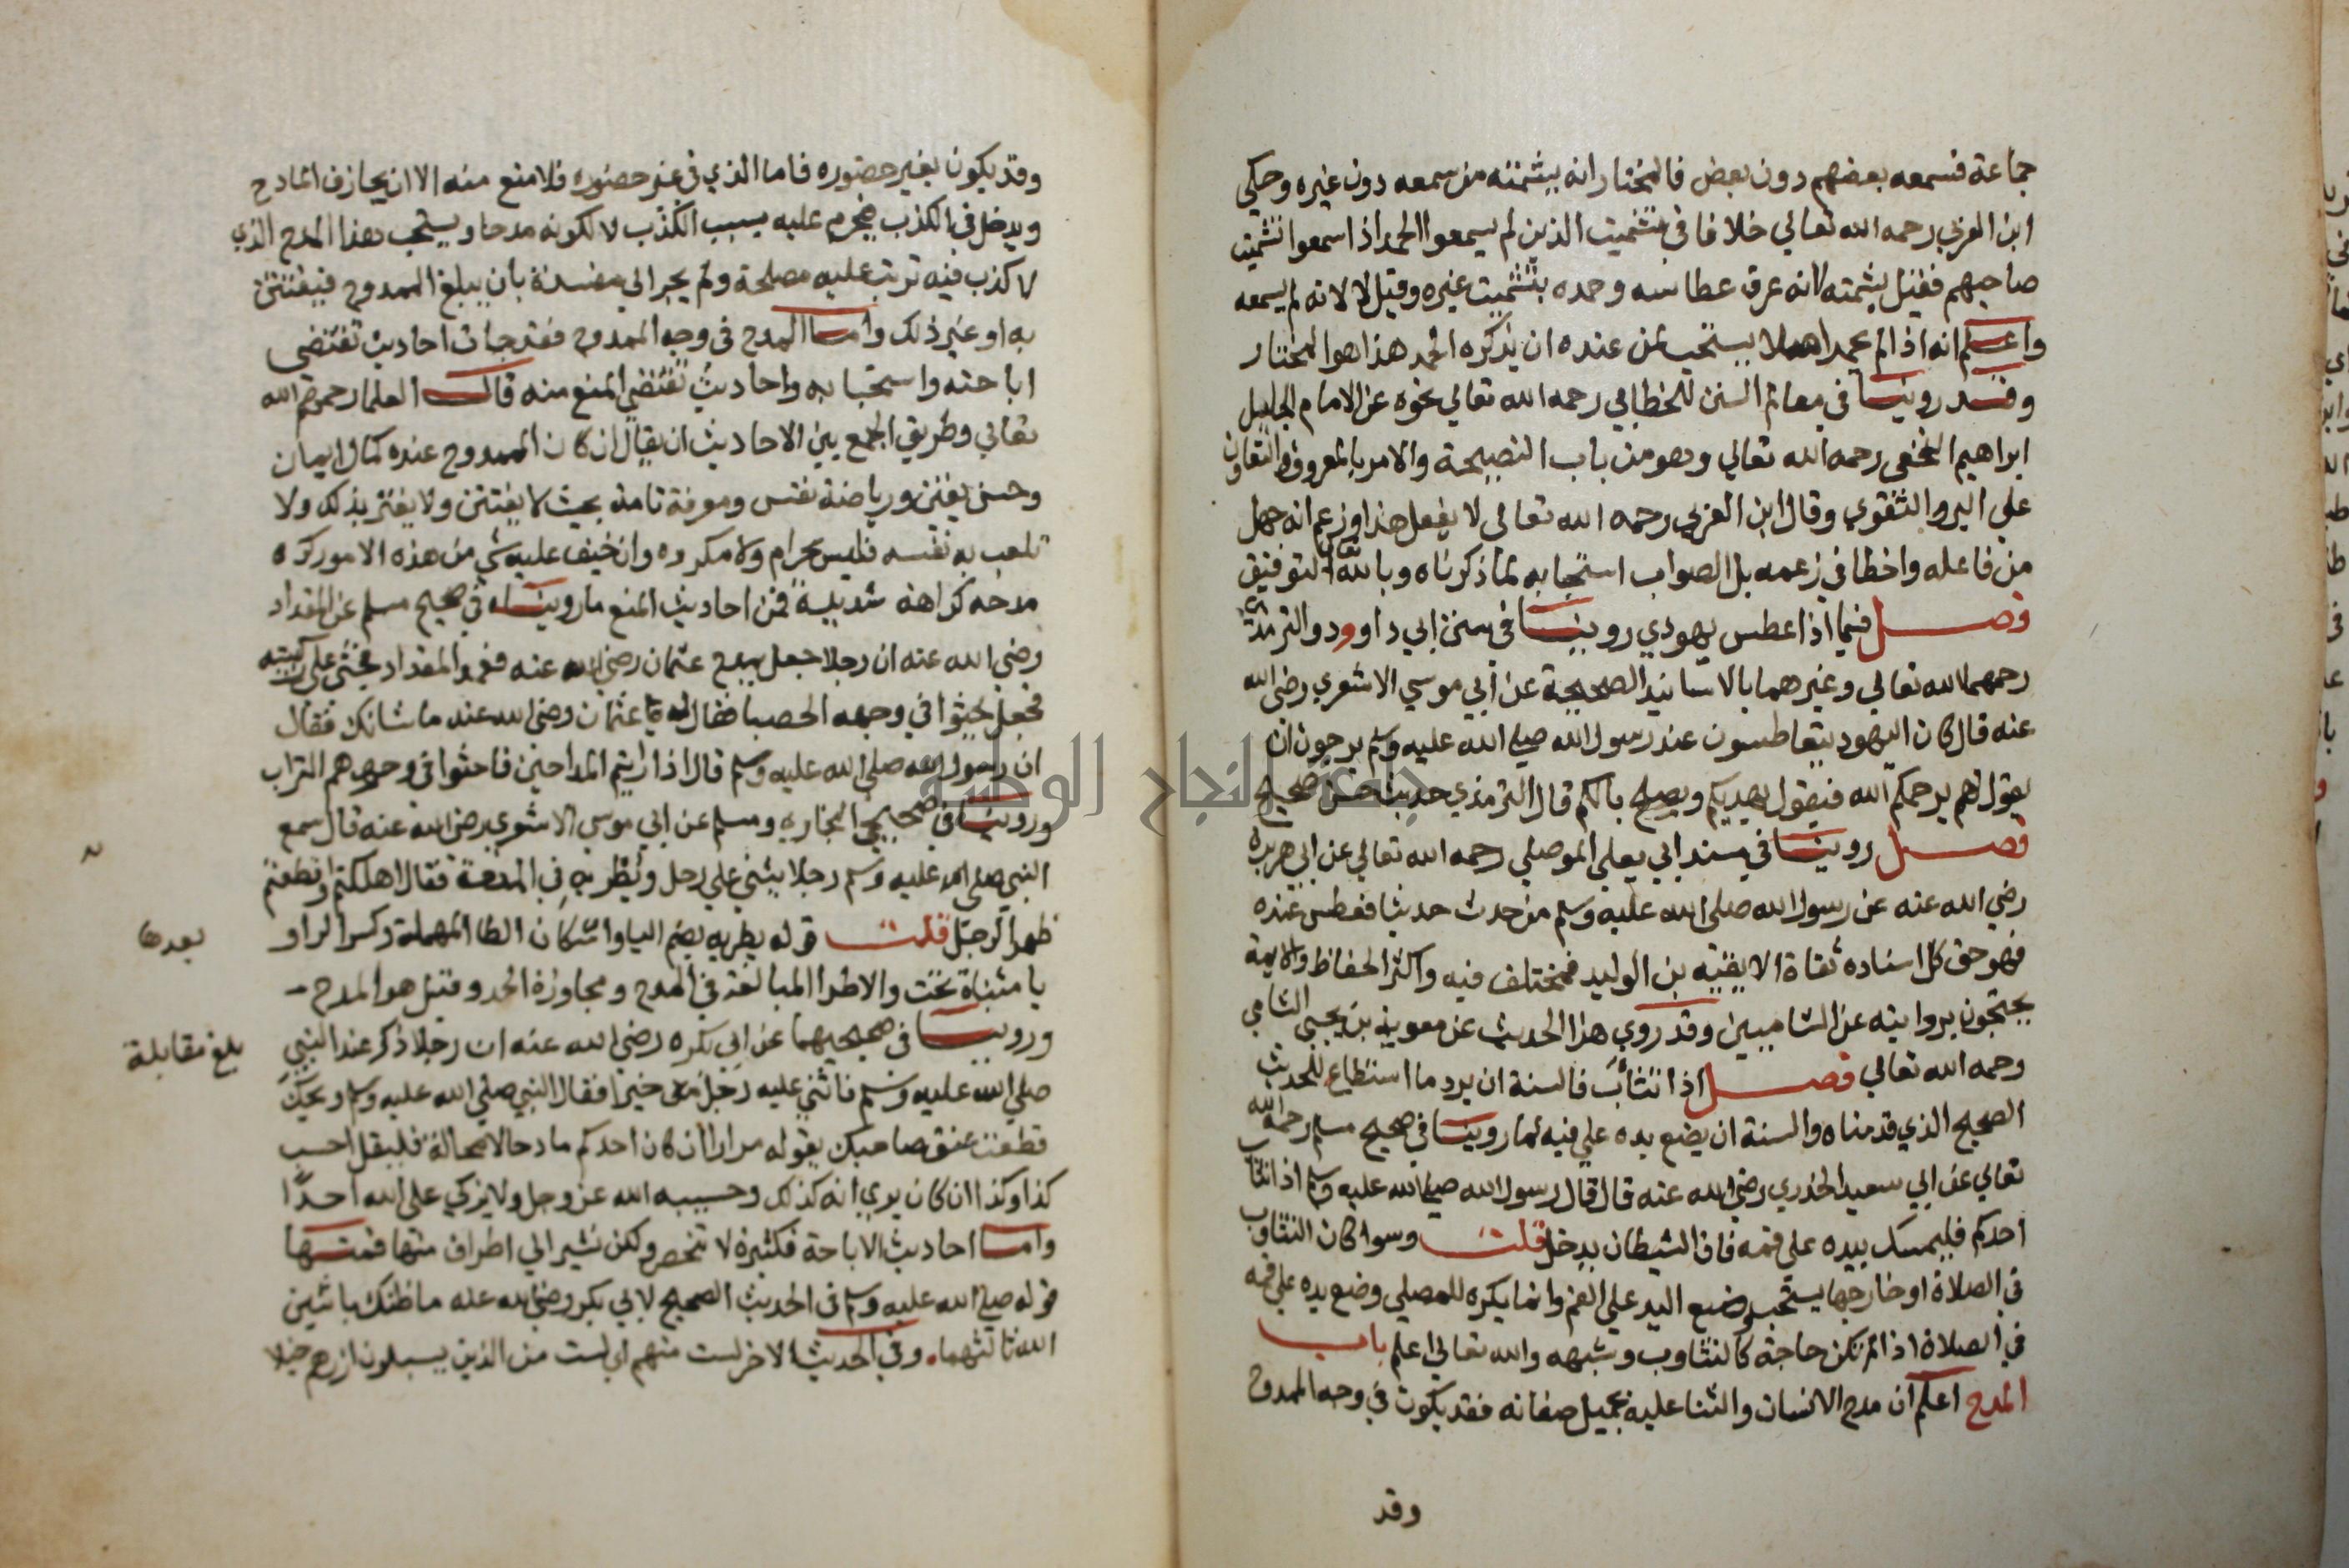 جماعة فسمعه بعضهم دون بعض فالمختار انه يشمته من سمعه دون غيره وحكي
ابن العربي رحمه الله تعالي خلافا في تشميت الذين لم يسمعوا الحمد اذا سمعوا تشميت
صاحبهم فقيل يشمته لانه عرف عطاسه وحمده بتشميت غيره وقيل لا لانه لم يسمعه
واعلم انه اذا لم يحمد اصلا يستحب لمن عنده ان يذكره الحمد هذا هو المختار
وقد روينا في معالم السنن للخطابي رحمه الله تعالي نحوه عن الامام الجليل
ابراهيم النخعي رحمه الله تعالي وهو من باب النصيحة والامر بالمعروف والتعاون
علي البر والتقوي وقال ابن العربي رحمه الله تعالى لا يفعل هذا وزعم انه جهل
من فاعله واخطا في زعمه بل الصواب استحبابه لما ذكرناه وبالله تعالى التوفيق
فصل فيما اذا عطس يهودي روينا في سنن ابي داوود والترمذي
رحمهما الله تعالي وغيرهما بالاسانيد الصحيحة عن ابي موسي الاشعري رضي الله
عنه قال كان اليهود يتعاطسون عند رسول الله صلي الله عليه وسلم يرجون ان
يقول لهم يرحمكم الله فيقول يهديكم ويصلح بالكم قال الترمذي حديث حسن صحيح
فصل روينا في مسند ابي يعلي الموصلي رحمه الله تعالي عن ابي هريرة
رضي الله عنه عن رسول الله صلي الله عليه وسلم من حدث حديثا فعطس عنده
فهو حق كل اسناده ثقاة الا بقية بن الوليد فمختلف فيه واكثر الحفاظ والايمة
يحتجون بروايته عن الشاميين وقد روي هذا الحديث عن معوية بن يحيى الشامي
رحمه الله تعالي فصل اذا تثأب فالسنة ان يرد ما استطاع للحديث
الصحيح الذي قدمناه والسنة ان يضع يده علي فيه لما روينا في صحيح مسلم رحمه الله
تعالي عن ابي سعيد الخدري رضي الله عنه قال قال رسول الله صلي الله عليه وسلم اذا تثأب
احدكم فليمسك بيده على فمه فان الشيطان يدخل قلت وسوا كان التثاوب
في الصلاة او خارجها يستحب وضع اليد علي الفم وانما يكره للمصلي وضع يده علي فمه
في الصلاة اذا لم تكن حاجة كالتثاوب وشبهه والله تعالي اعلم باب
المدح اعلم ان مدح الانسان والثنا عليه بجميل صفاته فقد يكون في وجه الممدوح
وقد
وقد يكون بغير حضوره فاما الذي في غير حضوره فلا منع منه الا ان يجازف المادح
ويدخل في الكذب فيحرم عليه بسبب الكذب لا لكونه مدحا ويستحب هذا المدح الذي
لا كذب فيه ترتب عليه مصلحة ولم يجر الي مفسدة بان يبلغ الممدوح فيفتتن
به او غير ذلك واما المدح في وجه الممدوح فقد جات احاديث تقتضي
اباحته واستحبابه واحاديث تقتضي المنع منه قال العلما رحمهم الله
تعالي وطريق الجمع بين الاحاديث ان يقال ان كان الممدوح عنده كمال ايمان
وحسن يقين ورياضة نفس ومعرفة تامة بحيث لا يفتتن ولا يغتر بذلك ولا
تلعب به نفسه فليس بحرام ولا مكروه وان خيف عليه شي من هذه الامور كره
مدحه كراهة شديدة فمن احاديث المنع ما رويناه في صحيح مسلم عن المقداد
رضي الله عنه ان رجلا جعل يمدح عثمان رضي الله عنه فعمد المقداد فجثى على ركبتيه
فجعل يحثوا في وجهه الحصبا فقال له عثمان رضي الله عنه ما شانك فقال
ان رسول الله صلى الله عليه وسلم قال اذا رايتم المداحين فاحثوا في وجوههم التراب
وروينا في صحيحي البخاري ومسلم عن ابي موسي الاشعري رضي الله عنه قال سمع
النبي صلي الله عليه وسلم رجلا يثني علي رجل ويطريه في المدحة فقال اهلكتم او قطعتم
ظهر الرجل قلت قوله يطريه بضم اليا واسكان الطا المهملة وكسر الرا و
بعدها
يا مثناة تحت والاطرا المبالغة في المدح ومجاوزة الحد وقيل هو المدح
وروينا في صحيحيهما عن ابي بكره رضي الله عنه ان رجلا ذكر عند النبي
بلغ مقابلة
صلي الله عليه وسلم فاثني عليه رجل خيرا فقال النبي صلي الله عليه وسلم ويحك
قطعت عنق صاحبك يقوله مرارا ان كان احدكم مادحا لا محالة فليقل احسب
كذا وكذا ان كان يري انه كذلك وحسيبه الله عز وجل ولا يزكي على الله احدا
واما احاديث الاباحة فكثيرة لا تنحصر ولكن نشير الي اطراف منها فمنها
قوله صلي الله عليه وسلم في الحديث الصحيح لابي بكر رضي الله عنه ما ظنك باثنين
الله ثالثهما وفي الحديث الاخر لست منهم اي لست من الذين يسبلون ازرهم خيلا
جامعة النجاح الوطنية